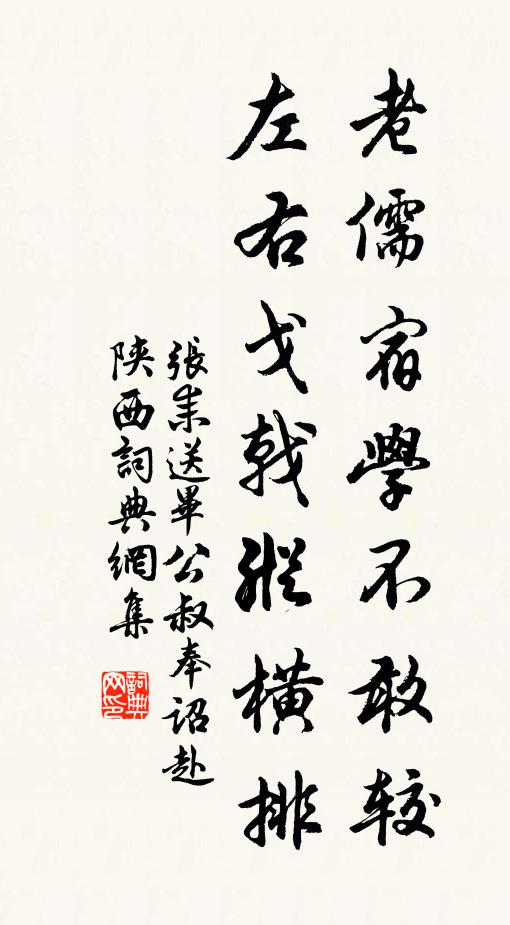 老儒宿學不敢較
左右戈戟縱橫排
張耒送畢公叔奉詔赴
陝西詞典網集
詞典
网印